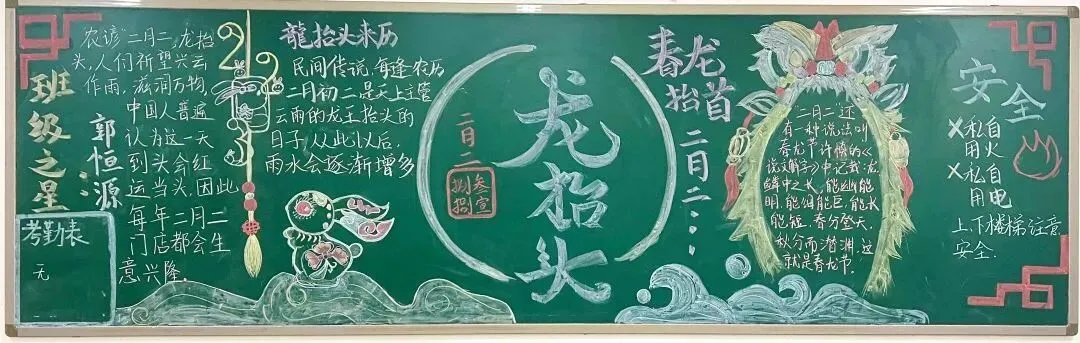 班级之星：
郭恒源
考勤表
无
农谚"二月二，龙抬
头，人们祈望兴云
作雨，滋润万物，
中国人普遍
认为这一天
到头会红
运当头，因此
每年二月二
门店都会生
意兴隆.
龍抬头来历
民间传说，每逢农历
二月初二是天上主管
云雨的龙王抬头的
日子，从此以后，
雨水会逐渐增多
二月二
叁壹
捌捌
龙抬头
春龙
抬首
二月二…
"二月二"还
有一种说法叫
春龙节，许慎的《
说文解字》中记载：龙，
鳞中之长，能幽能
明，能细能巨，能水
能短，春分登天，
秋分而潜渊，这
就是春龙节.
安全
X私自
用火
X私自
用电
上、下楼梯注意
安全.